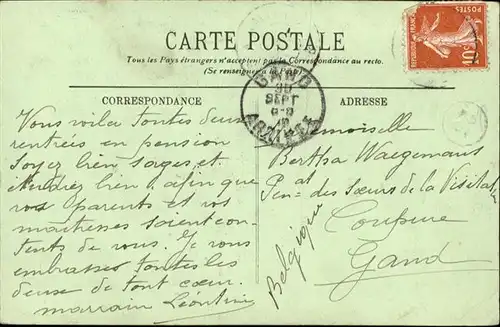 CARTE POSTALE
Tous les Pays étrangers n'acceptent pas la Correspondance au recto.
(Se renseigner à la Poste)
CORRESPONDANCE
Vous voila toutes deux
rentrées en pension
Soyez bien sages et
étudiez bien, afin que
vos parents et vos
maîtresses soient con-
tents de vous. Je vous
embrasse toutes les
deux de tout cœur.
marraine Léontine
ADRESSE
Mademoiselle
Bertha Waegemans
Pen^at des Sœurs de la Visitat
Coupure
Gand
Belgique
GAND
SEPT
POSTES
10